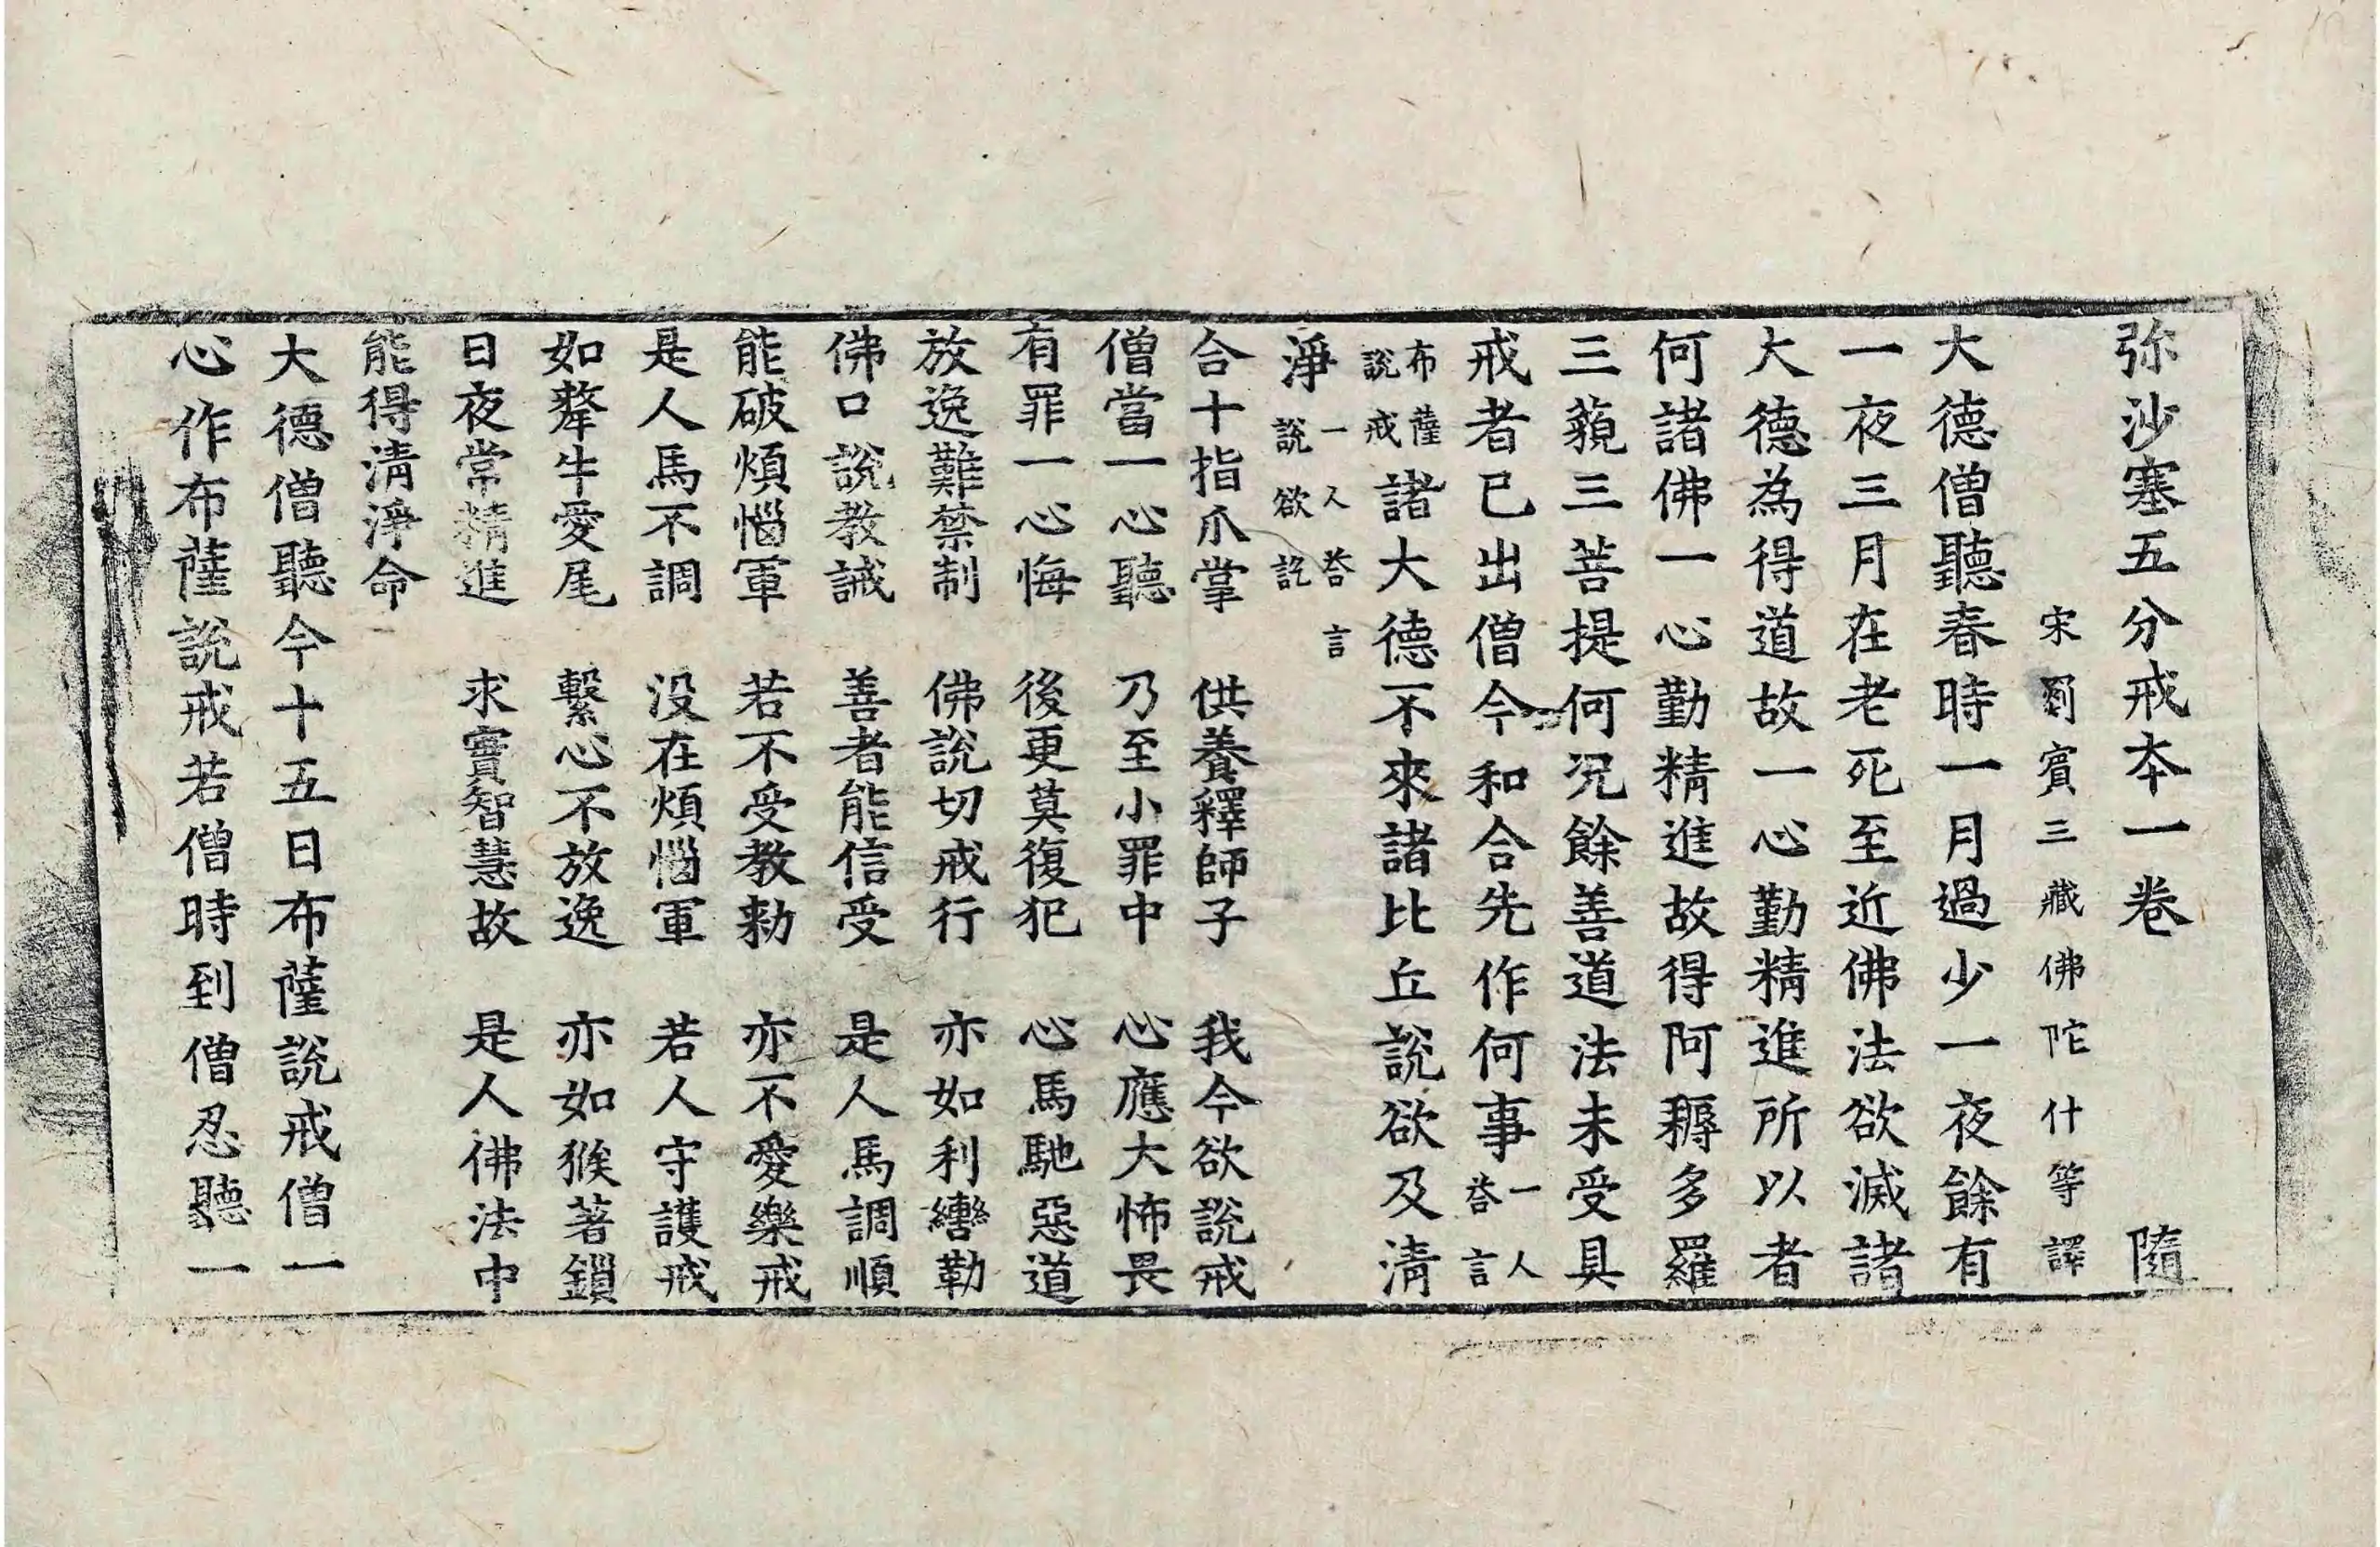 弥沙塞五分戒本一卷　隨
宋罽賓三藏佛陀什等譯
大德僧聽春時一月過少一夜餘有
一夜三月在老死至近佛法欲滅諸
大德為得道故一心勤精進所以者
何諸佛一心勤精進故得阿耨多羅
三藐三菩提何況餘善道法未受具
戒者已出僧今和合先作何事一人荅言
布薩說戒諸大德不來諸比丘說欲及清
淨一人荅言說欲訖
合十指爪掌　供養釋師子　我今欲說戒
僧當一心聽　乃至小罪中　心應大怖畏
有罪一心悔　後更莫復犯　心馬馳惡道
放逸難禁制　佛說切戒行　亦如利轡勒
佛口說教誡　善者能信受　是人馬調順
能破煩惱軍　若不受教勑　亦不愛樂戒
是人馬不調　没在煩惱軍　若人守護戒
如犛牛愛尾　繫心不放逸　亦如猴著鎖
日夜常精進　求實智慧故　是人佛法中
能得清淨命
大德僧聽今十五日布薩說戒僧一
心作布薩說戒若僧時到僧忍聽一